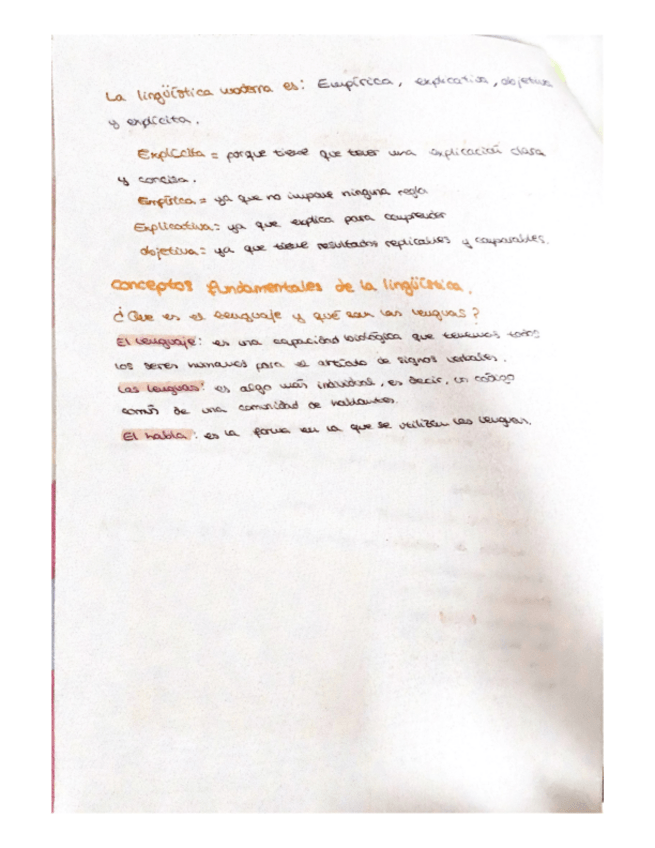 La lingüística moderna es: Empírica, explicativa, objetiva
y explícita.
Explícita = porque tiene que tener una explicación clara
y concisa.
Empírica = ya que no impone ninguna regla
Explicativa: ya que explica para comprender
objetiva: ya que tiene resultados replicables y comparables.
Conceptos fundamentales de la lingüística.
¿Que es el lenguaje y qué son las lenguas?
El lenguaje: es una capacidad biológica que tenemos todos
los seres humanos para el de signos verbales.
Las lenguas: es algo más individual, es decir, un código
común de una comunidad de hablantes.
El habla: es la forma en la que se utilizan las lenguas.